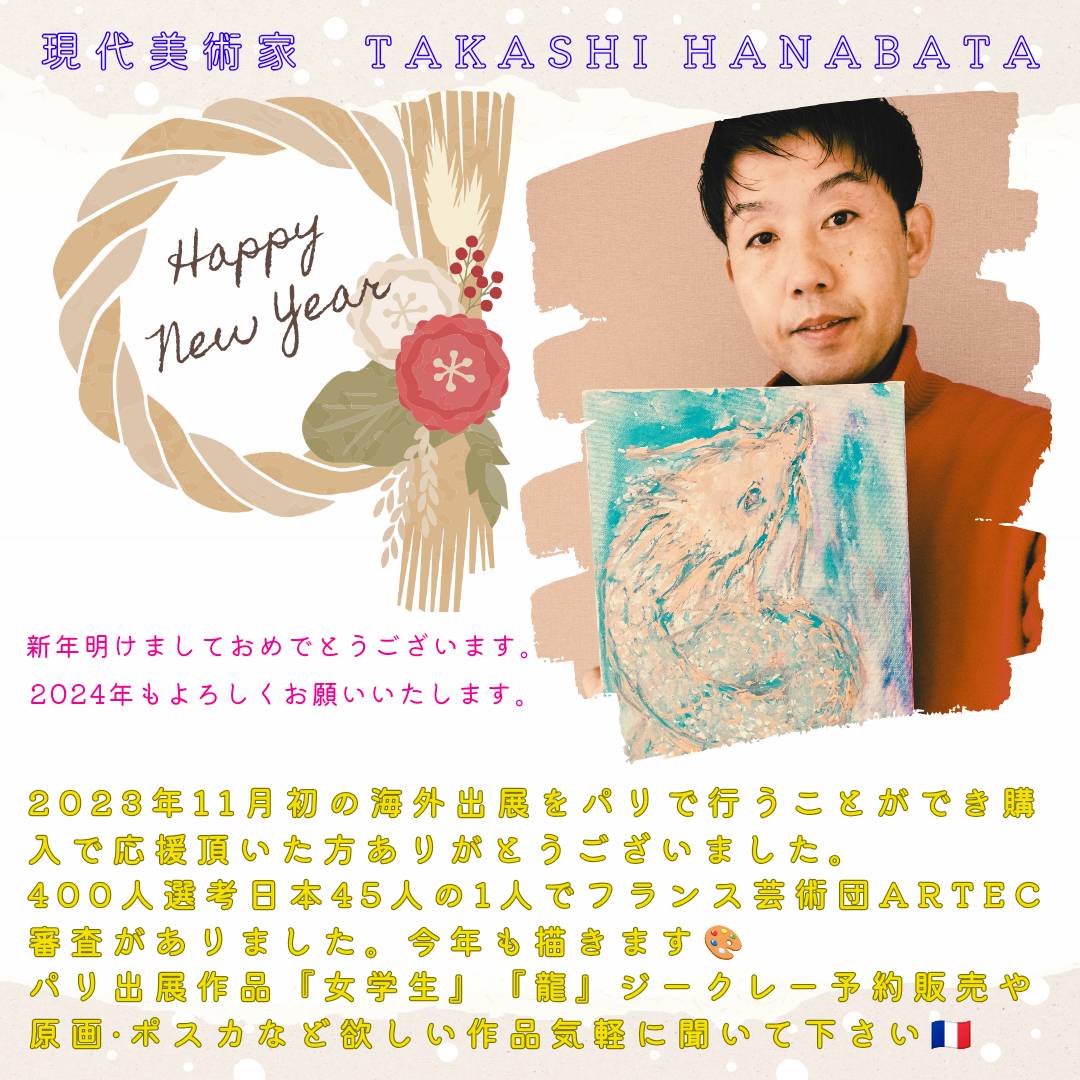 現代美術家　TAKASHI HANABATA
Happy
New Year
新年明けましておめでとうございます。
2024年もよろしくお願いいたします。
2023年11月初の海外出展をパリで行うことができ購
入で応援頂いた方ありがとうございました。
400人選考日本45人の1人でフランス芸術団ARTEC
審査がありました。今年も描きます🎨
パリ出展作品『女学生』『龍』ジークレー予約販売や
原画·ポスカなど欲しい作品気軽に聞いて下さい🇫🇷